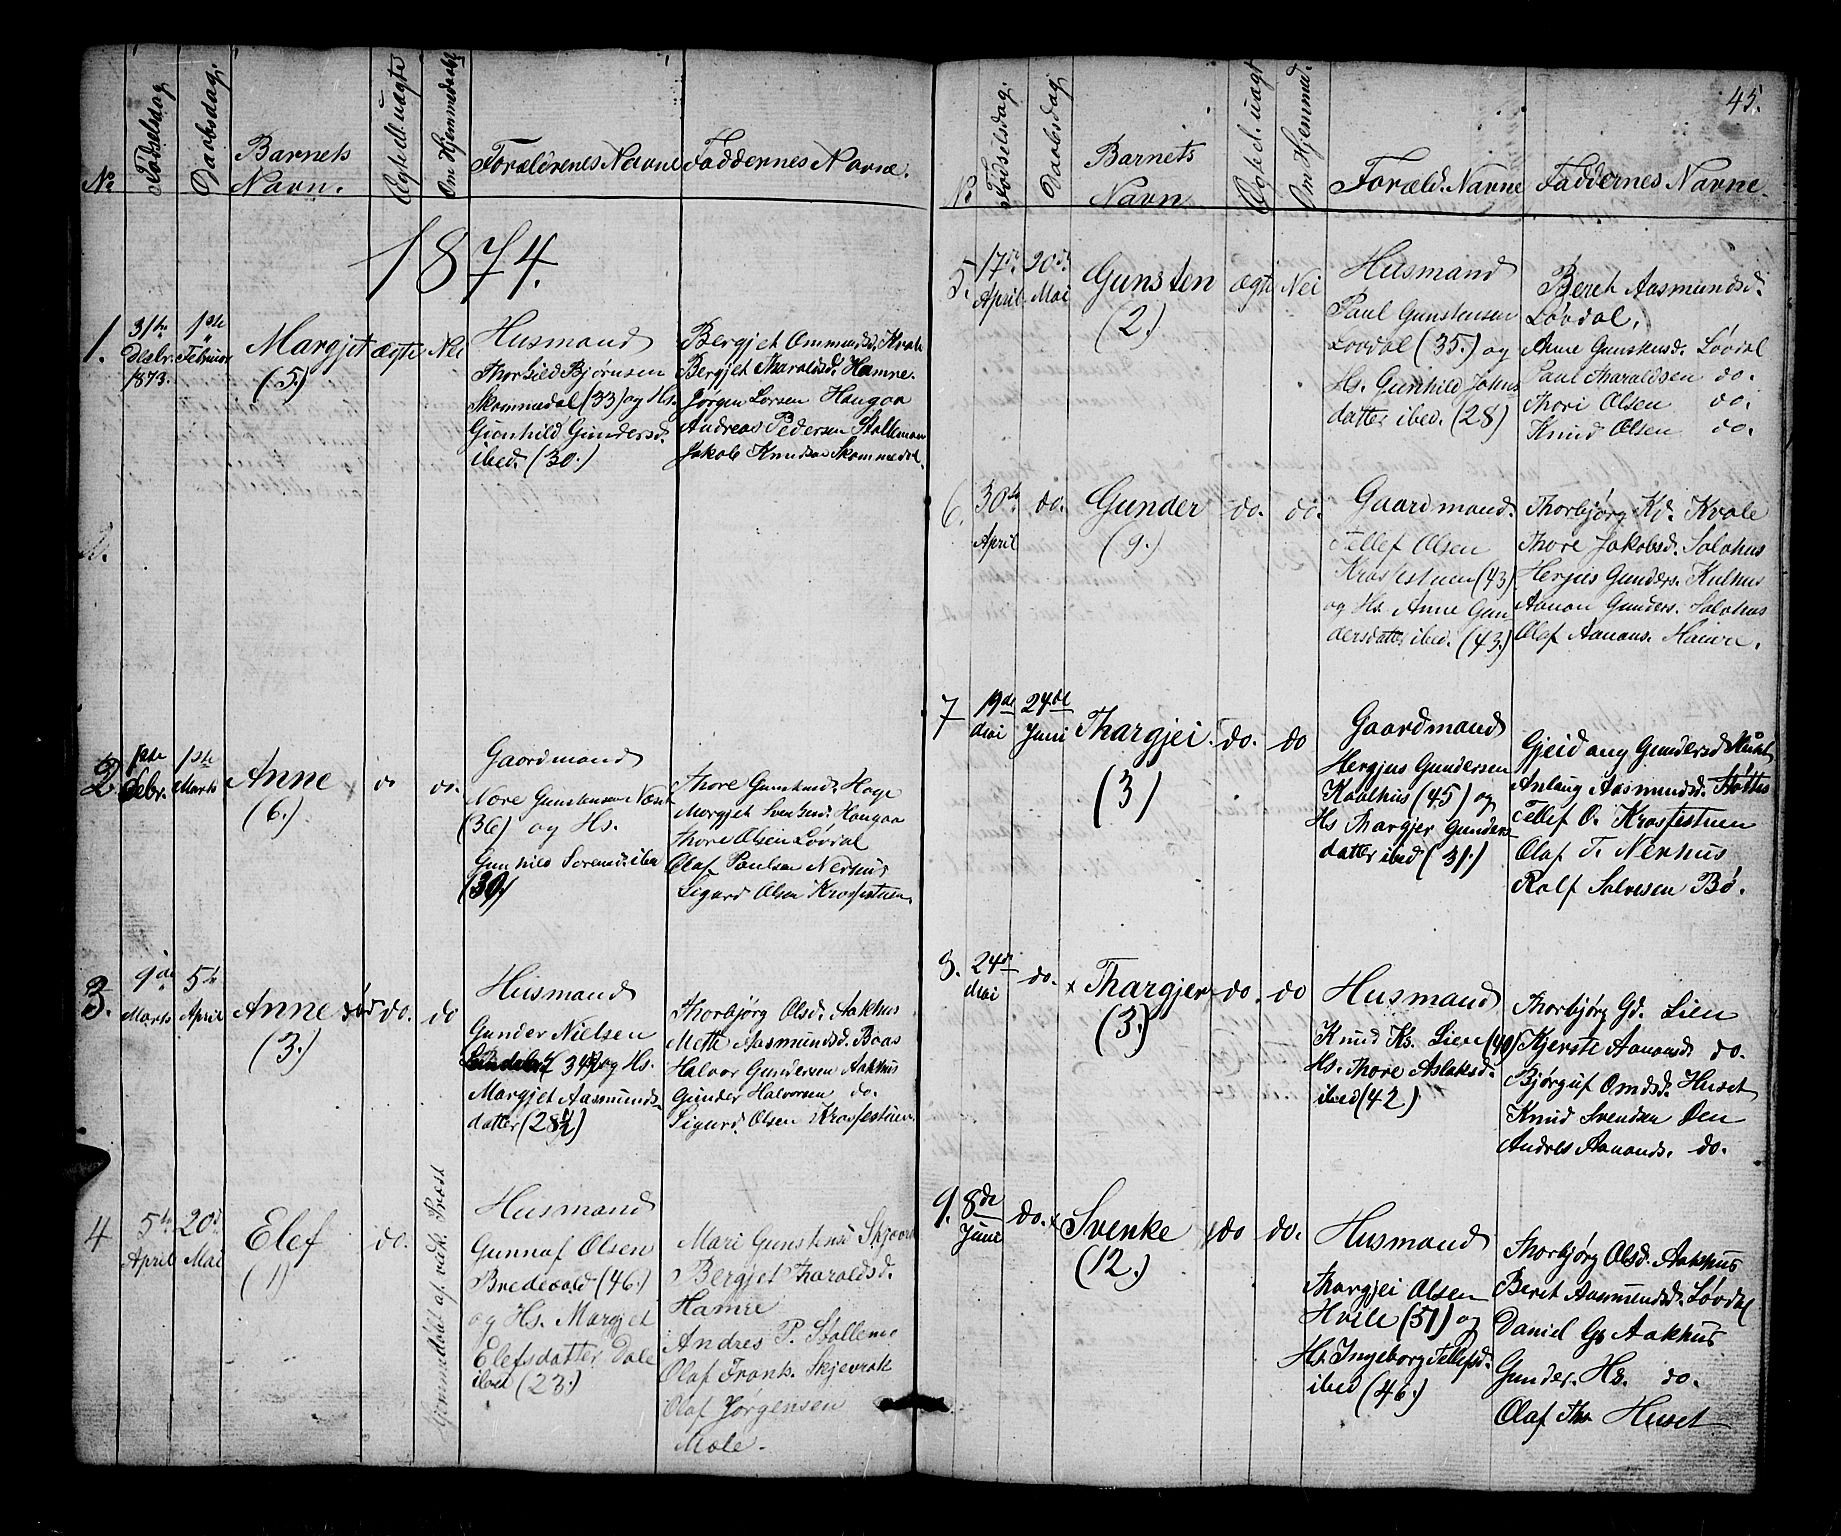 No
Fødselsdag
Daabsdag.
Barnets
Navn.
Ægte ell. uægte
Om Hjemmedøbt
Forældrenes Navne
Faddernes Navne.
1874.
1.
31te Decbr. 1873.
1ste Februar
Margjet
(5.)
ægte
Nei
Husmand
Thorkild Bjørnsen
Skommedal (33) og Hs.
Gunhild Gundersd.
ibed. (30.)
Bergjet Ommundsd. Kvale
Bergjet Tharaldsd. Hamre.
Jørgen Larsen Haugaa
Andreas Pedersen Stallemo
Jakob Knudsen Skommedal.
2
1ste Febr.
1ste Marts
Anne
(6.)
do
do.
Gaardmand
Nære Gunstensen Næset
(36) og Hs.
Gunhild Sorensd. ibed
(30)
Thore Gunstensd. Hage
Margjet Svenkesd. Haugaa
Thore Olsen Løvdal
Olaf Paulsen Nedhus
Sigurd Olsen Krosfestuen
3.
9de Marts
5te April
Anne
(3.)
do.
do
Husmand
Gunder Nielsen
34 og Hs.
Margjet Aasmunds-
datter (28)
Thorbjørg Olsd. Aakhus
Mette Aasmundsd. Baas
Halvor Gundersen Aakhus
Gunder Halvorsen do.
Sigurd Olsen Krosfestuen
4
5te April
20de Mai
Elef
(1)
do.
Hjemmedøbt af vedk. Præst
Husmand
Gunnuf Olsen
Bredevold (46.)
og Hs. Margjet
Elefsdatter Dale
ibed (23.)
Mari Gunstensd Skjævrak
Bergjet Tharaldsd.
Hamre
Andres P. Stallemo
Olaf Frants. Skjevrak
Olaf Jørgensen
Mole.
45.
No
Fødselsdag.
Daabsdag
Barnets
Navn
Ægte el. uægt
Om Hjemmed.
Foræld. Navne
Faddernes Navne
5.
17de April
20de Mai
Gunsten
(2.)
ægte
Nei
Husmand
Paul Gunstensen
Løvdal (35.) og
Hs. Gunhild Johns
datter ibed. (28)
Beret Aasmundsd.
Løvdal.
Anne Gunstensd. Løvdal
Paul Tharaldsen do.
Thori Olsen do.
Knud Olsen do.
6.
30te April
do.
Gunder
(9.)
do.
do.
Gaardmand.
Tellef Olsen
Krosfestuen (43)
og Hs. Anne Gun
dersdatter ibed. (43.)
Thorbjørg Kd. Kvale
Thore Jakobsd. Solohus
Herjus Gunders. Kulhus
Aanon Gunders. Solohus
Olef Aanons. Hamre.
7
19de Mai
24de Juni
Thargjei.
(3)
do.
do
Gaardmand
Hergjus Gundersen
Kaalhus (45) og
Hs Thargjer Gunders-
datter ibed (31.)
Gjeid ang Gundersd
Anlaug Aasmundsd.
Tellef O. Krosfestuen
Olaf T. Nerhus
Rolf Salvesen Bø.
8.
24de Mai
do.
Thargjer
(3.)
do.
do
Husmand
Knud Ks. Lien (40)
Hs. Thore Aslaksd.
ibed (42)
Thorbjørg Gd. Lien
Kjerste Aanonsd. do.
Bjørguf Omds. Huset
Knud Svendsen Øen
Andres Aanonds. do.
9.
8de Juni
do.
Svenke
(12.)
do
do.
Husmand
Thargjei Olsen
Hvile (51) og
Hs. Ingeborg Tellefsd.
ibed (46.)
Thorbjørg Olsd. Aakhus
Beret Aasmundsd. Løvdal
Daniel Gs Aakhus
Gunder. Hs. do.
Olaf Ths. Huset